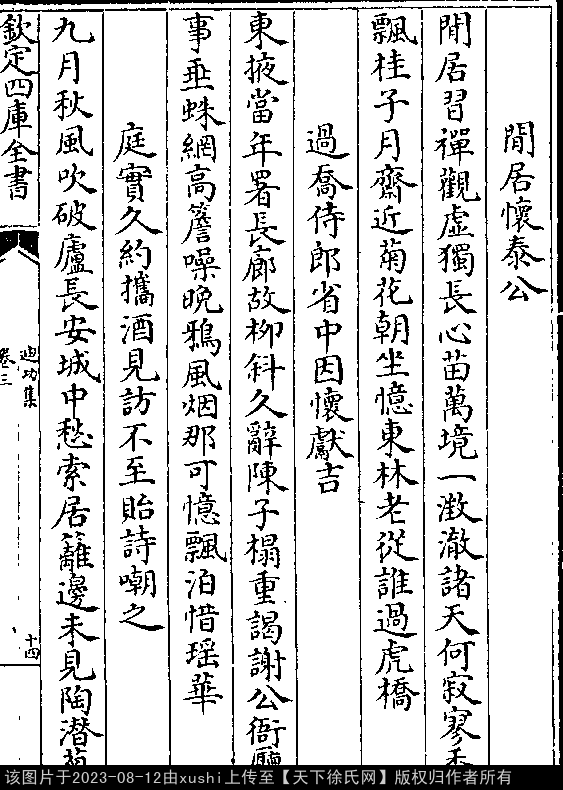 閒居懷泰公
閒居習禪觀虛獨長心苗萬境一澂澈諸天何寂寥
飄桂子月齋近菊花朝坐憶東林老從誰過虎橋
過喬侍郎省中因懷獻吉
東掖當年署長廊故栁斜久辭陳子榻重謁謝公衙廳
事垂蛛網高簷噪晚鴉風烟那可憶飄泊惜瑶華
庭實久約攜酒見訪不至貽詩嘲之
九月秋風吹破廬長安城中愁索居籬邊未見陶潛
欽定四庫全書
迪功集
卷三
十四
该图片于2023-08-12由xushi上传至【天下徐氏网】版权归作者所有